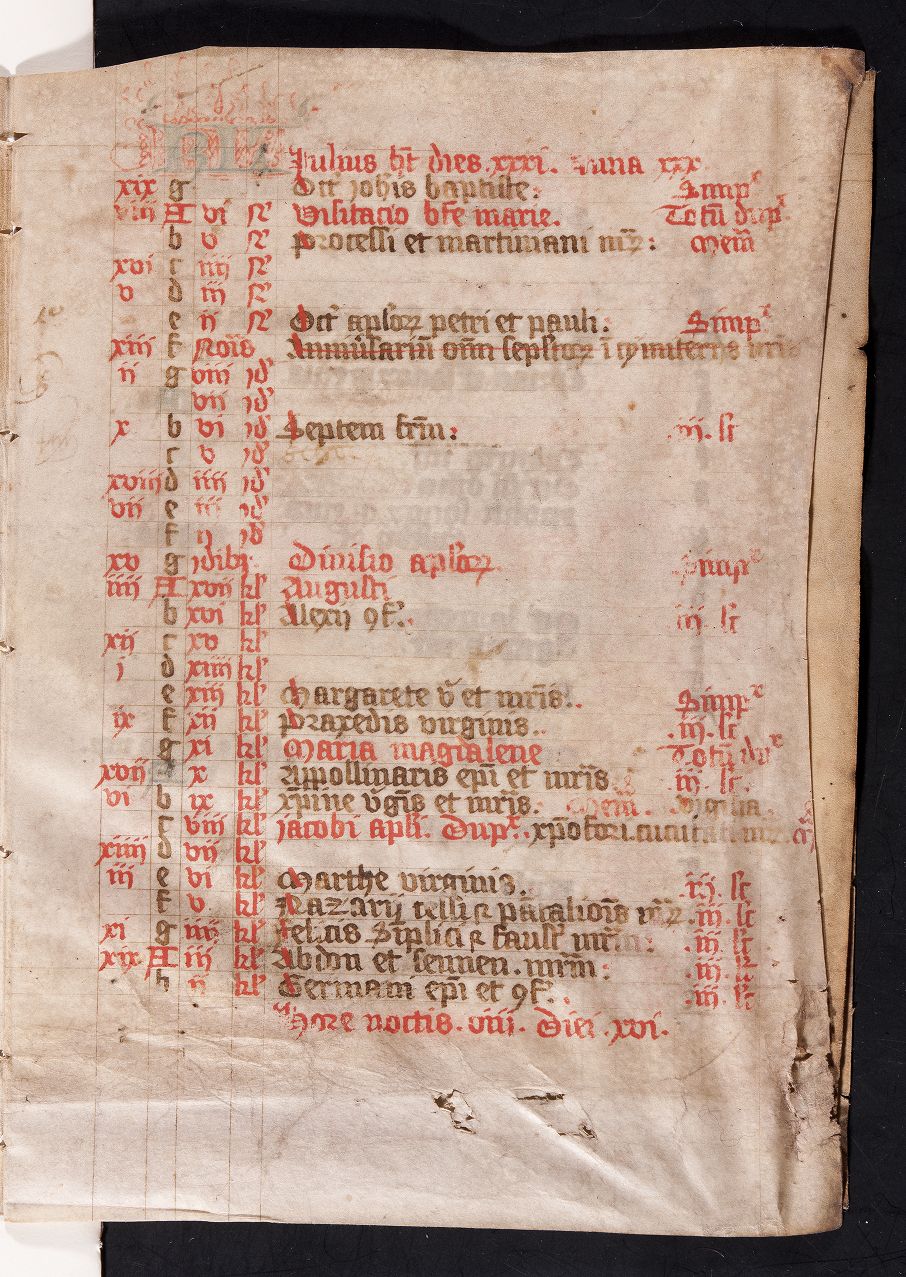 KL Julius hꝫt dies .xxxi. Luna xxx
xix g Oct̄ joh̄is baptiste: Simpˣ
viij A vi N Visitacio bt̄e marie. Totū dupˣ
b v N Processi et martiniani mr̄ꝝ: Mem̄
xvi c iiij N
v d iij N
e ij N Oct̄ apl̄oꝝ petri et pauli. Simpˣ
xiij f Noīs Anniu̾sariū om̄ sepl̄toꝝ ī cymiterijs
ij g viij jd̾
vij jd̾
x b vi jd̾ Septem fr̄m: .iij. lc̄
c v jd̾
xviij d iiij jd̾
vij e iij jd̾
f ij jd̾
xv g jdibꝫ Diuisio apl̄oꝝ Simpˣ
iiij A xvij kl̾ Augusti
b xvi kl̾ Alexij ꝯf̾. iij. lc̄
xij c xv kl̾
j d xiiij kl̾
e xiij kl̾ Margarete v̾ et mr̄is. Simpˣ
ix f xij kl̾ Praxedis virginis. .iij. lc̄
g xi kl̾ Maria magdalene Totū duˣ
xvij A x kl̾ Appollinaris ep̄i et mr̄is iij. lc̄.
vi b ix kl̾ xp̄ine v̾gīs et mr̄is. Mem̄. Vigilia.
c viij kl̾ jacobi apl̄i. Dupˣ. xp̄ofori. cucufati
xiiij d vij kl̾
iij e vi kl̾ Marthe virginis. .iij. lc̄
f v. kl̾ Nazarij celsi ⁊ pātalioīs mr̄ꝝ .iij. lc̄
xi g iiij kl̾ Felicis Siplicij ⁊ faust̾ mr̄m: .iij. lc̄
xix. A iij kl̾ Abdon et sennen. mr̄m: .iij. lc̄
b ij kl̾ Germani ep̄i et ꝯf̾. .iij. lc̄
Hore noctis. viij. Diei .xvi.